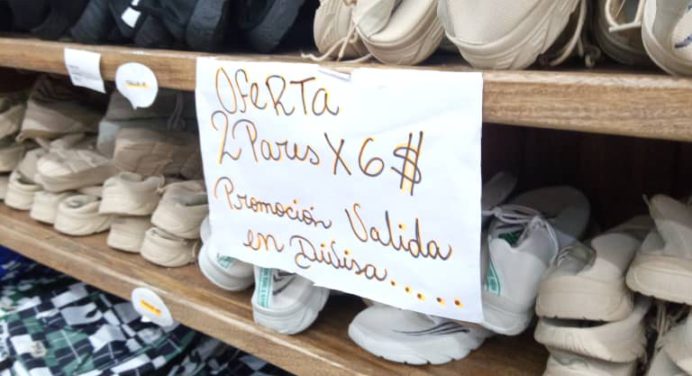 OfeRTa
2 Pares X 6 $
Promoción Valida
en Divisa.....